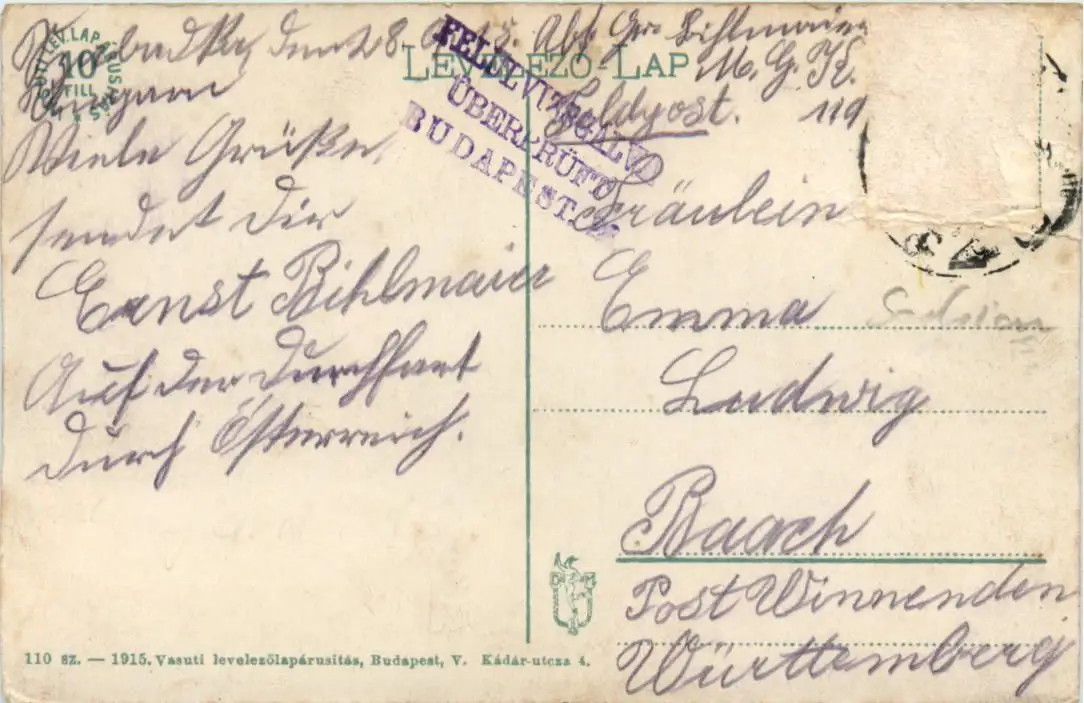 Szabadka, den 28. Abs. Gr. Bihlmaier
Ungarn M. G. K.
Feldpost. 119
VASUTI LEV. LAP
10
FILL
LEVELEZŐ LAP
FELÜLVIZSGÁLVA
ÜBERPRÜFT
BUDAPEST.
Viele Grüße
sendet Dir
Ernst Bihlmaier
Auf der Durchfart
durch Österreich.
Fräulein
Emma
Ludwig
Baach
Post Winnenden
Württemberg
110 sz. — 1915. Vasuti levelezőlapárusitás, Budapest, V. Kádár-utcza 4.